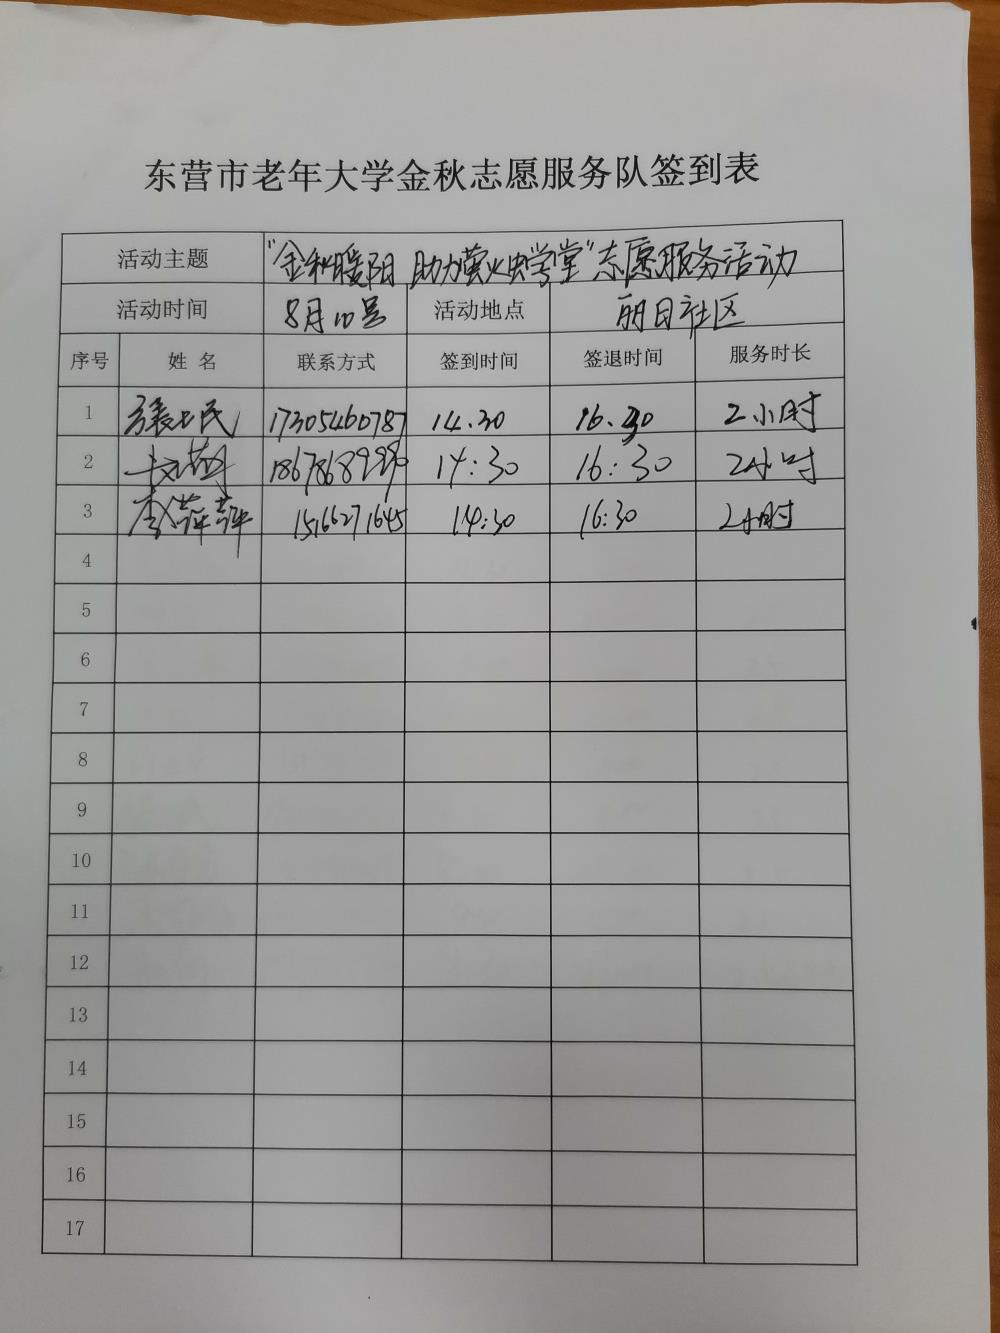 东营市老年大学金秋志愿服务队签到表
活动主题 "金秋暖阳 助力萤火虫学堂"志愿服务活动
活动时间 8月10号 活动地点 丽日社区
序号 姓名 联系方式 签到时间 签退时间 服务时长
1 17305460787 14.30 16.30 2小时
2 14:30 16:30 2小时
3 李萍萍 15166271645 14:30 16:30 2小时
4
5
6
7
8
9
10
11
12
13
14
15
16
17